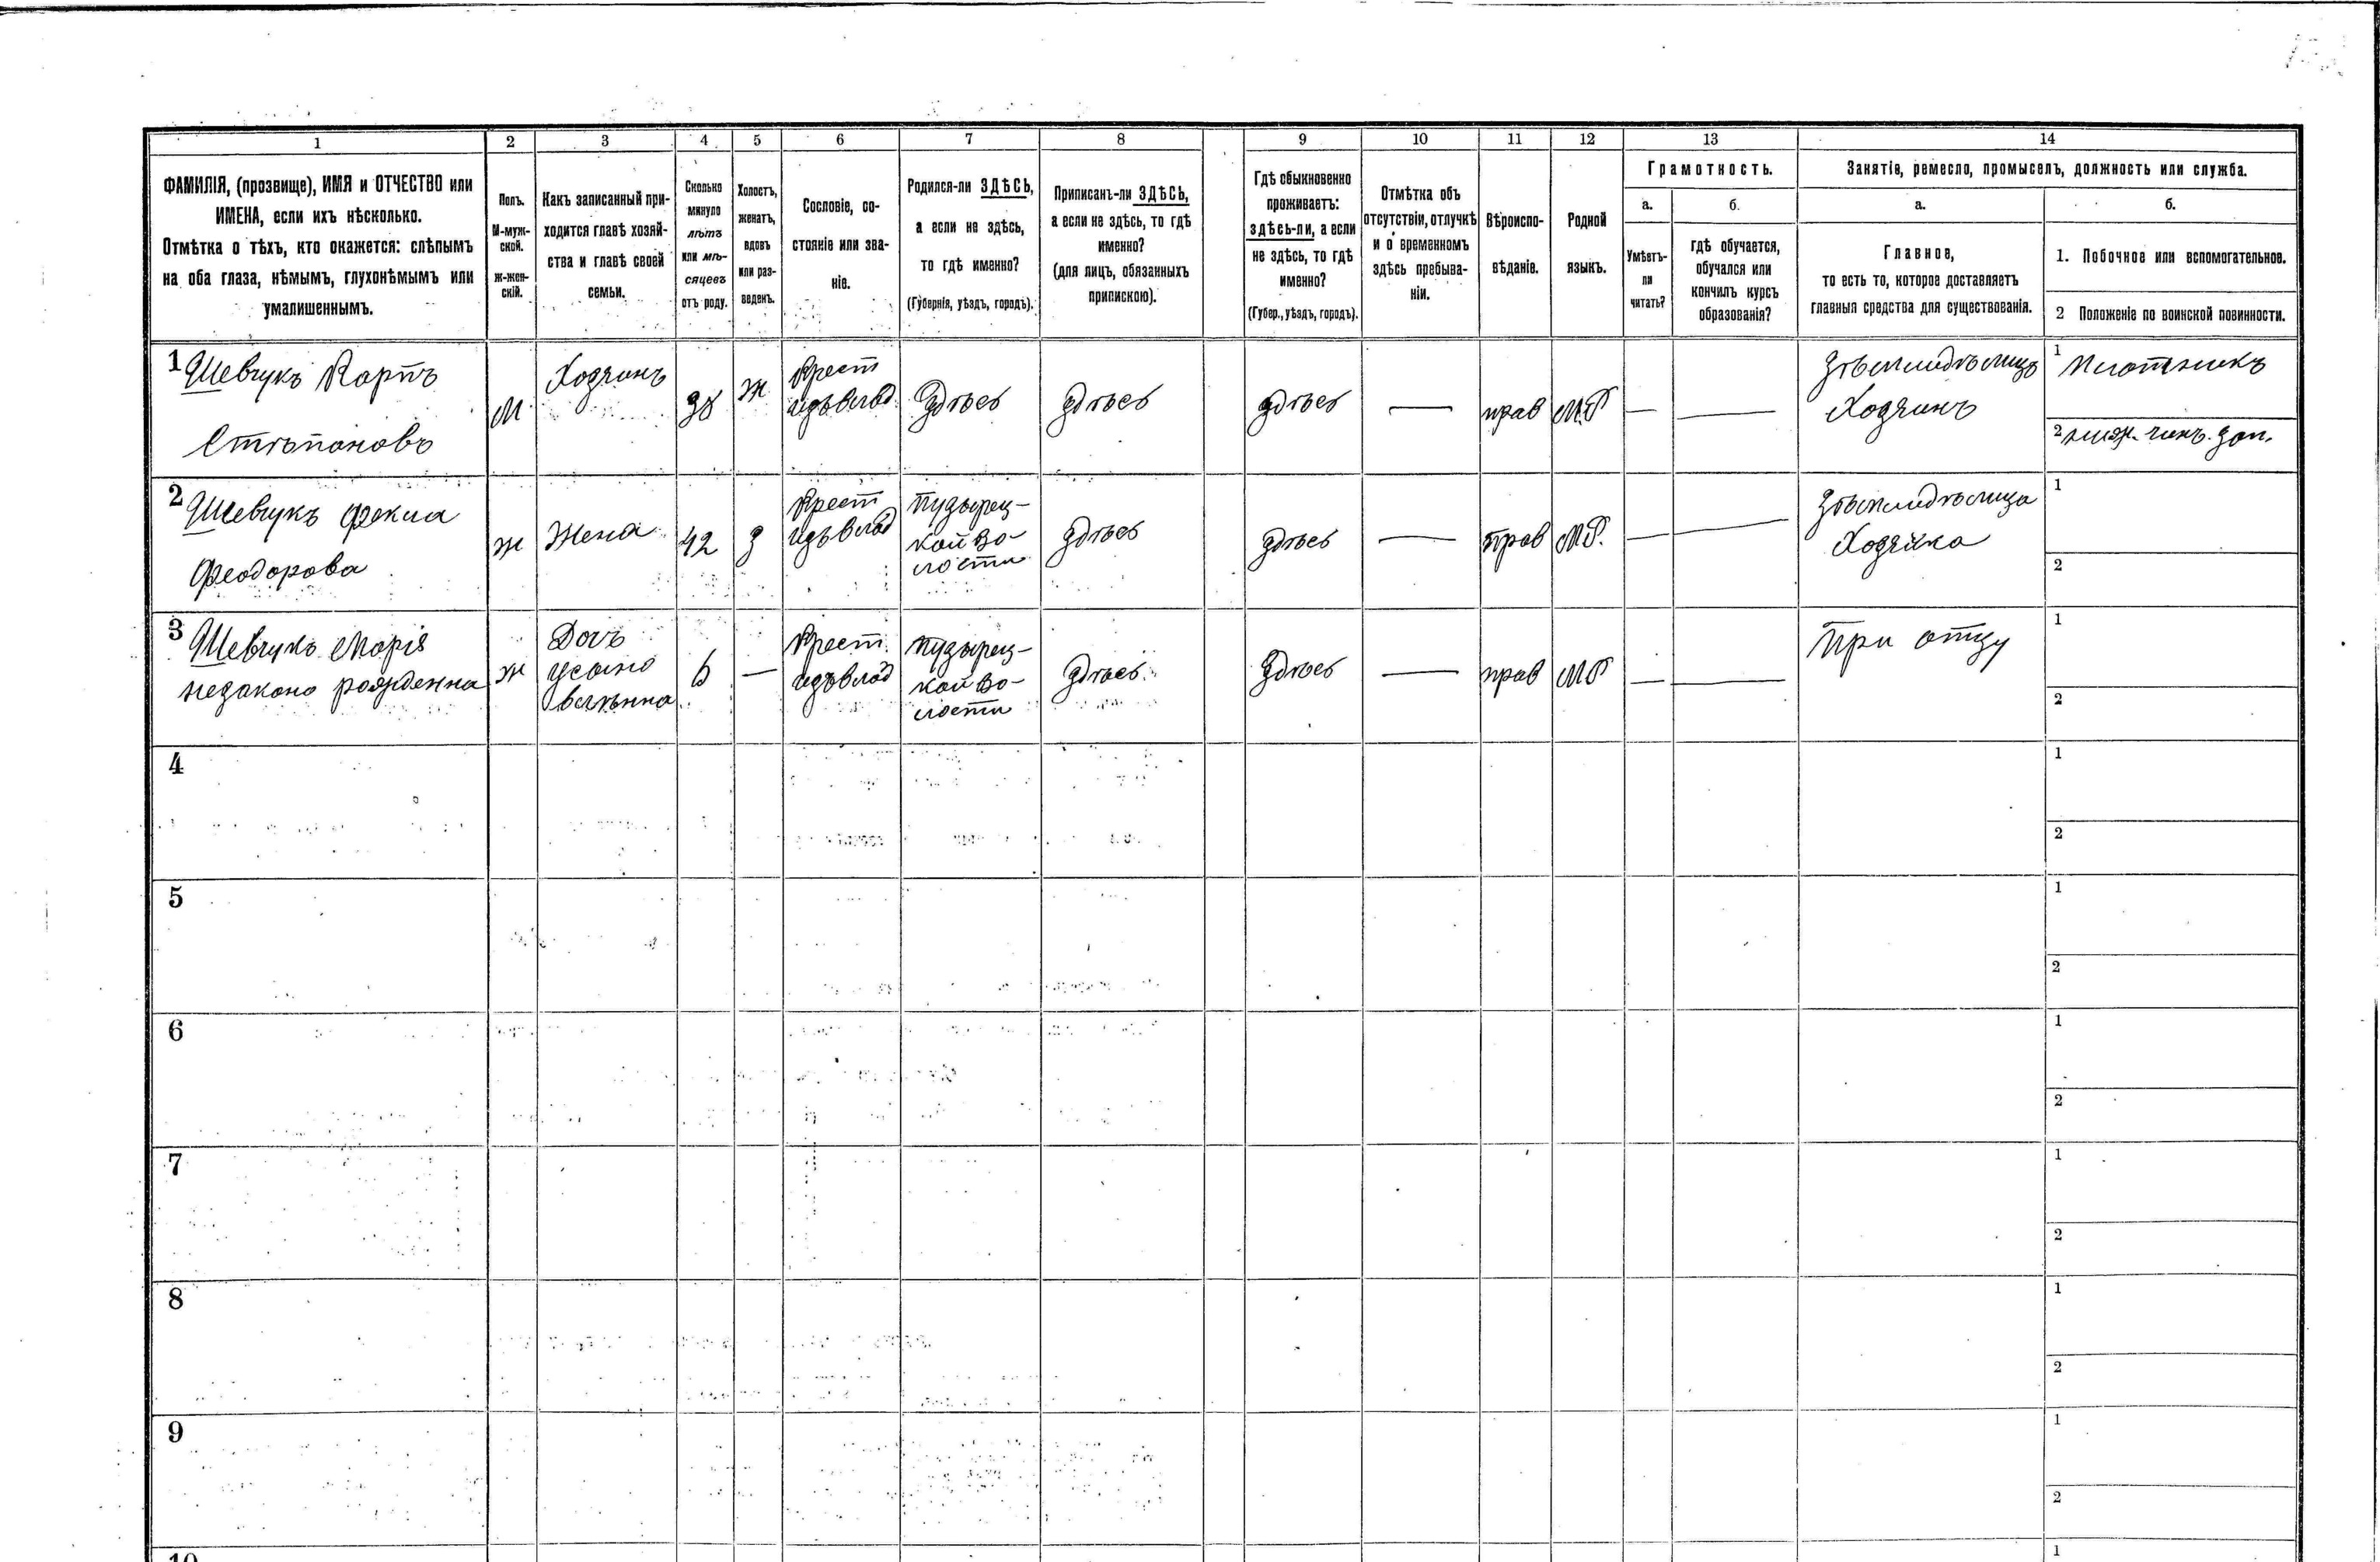 1 2 3 4 5 6 7 8 9 10 11 12 13 14
ФАМИЛІЯ, (прозвище), ИМЯ и ОТЧЕСТВО или
ИМЕНА, если ихъ нѣсколько.
Отмѣтка о тѣхъ, кто окажется: слѣпымъ
на оба глаза, нѣмымъ, глухонѣмымъ или
умалишеннымъ.
Полъ.
М-муж-
ской.
ж-жен-
скій.
Какъ записанный при-
ходится главѣ хозяй-
ства и главѣ своей
семьи.
Сколько
минуло
лѣтъ
или мѣ-
сяцевъ
отъ роду.
Холостъ,
женатъ,
вдовъ
или раз-
веденъ.
Сословіе, со-
стояніе или зва-
ніе.
Родился-ли ЗДѢСЬ,
а если не здѣсь,
то гдѣ именно?
(Губернія, уѣздъ, городъ).
Приписанъ-ли ЗДѢСЬ,
а если не здѣсь, то гдѣ
именно?
(для лицъ, обязанныхъ
припискою).
Гдѣ обыкновенно
проживаетъ:
здѣсь-ли, а если
не здѣсь, то гдѣ
именно?
(Губер., уѣздъ, городъ).
Отмѣтка объ
отсутствіи, отлучкѣ
и о временномъ
здѣсь пребыва-
ніи.
Вѣроиспо-
вѣданіе.
Родной
языкъ.
Грамотность.
а.
Умѣетъ-
ли
читать?
б.
гдѣ обучается,
обучался или
кончилъ курсъ
образованія?
Занятіе, ремесло, промыселъ, должность или служба.
а.
Главное,
то есть то, которое доставляетъ
главныя средства для существованія.
б.
1. Побочное или вспомогательное.
2 Положеніе по воинской повинности.
1 Шевчукъ Карпъ
Стѣпановъ
М
Хозяинъ
38
ж
Крест
изъ влад
Здѣсь
здѣсь
здѣсь
—
прав
М.Р
—
—
Зѣмлидѣлицъ
Хозяинъ
1 Плотникъ
2 нижн. чинъ. зап.
2 Шевчукъ Фекла
Феодорова
ж
Жена
42
З
Крест
изъ влад
Пузырец-
кой во-
лости
здѣсь
здѣсь
—
прав
М.Р.
—
—
Зѣмлидѣлица
Хозяйка
1
2
3 Шевчукъ Марія
незаконо рожденна
ж
Дочъ
усыно
влѣнна
6
—
Крест.
изъ влад
Пузырец-
кой во-
лости
здѣсь
здѣсь
—
прав
МР
—
—
При отцу
1
2
4
1
2
5
1
2
6
1
2
7
1
2
8
1
2
9
1
2
10
1